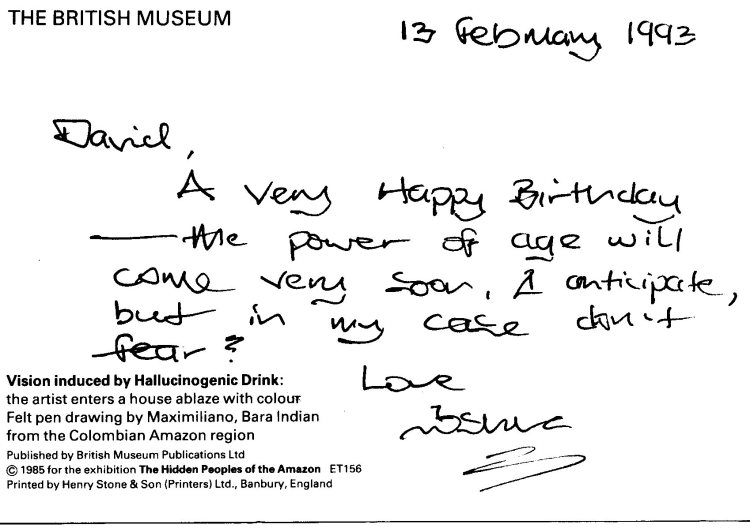 THE BRITISH MUSEUM
13 February 1993
David,
A Very Happy Birthday
— the power of age will
come very soon, I anticipate,
but in my case don't
fear?
Love
Vision induced by Hallucinogenic Drink:
the artist enters a house ablaze with colour
Felt pen drawing by Maximiliano, Bara Indian
from the Colombian Amazon region
Published by British Museum Publications Ltd
© 1985 for the exhibition The Hidden Peoples of the Amazon ET156
Printed by Henry Stone & Son (Printers) Ltd., Banbury, England